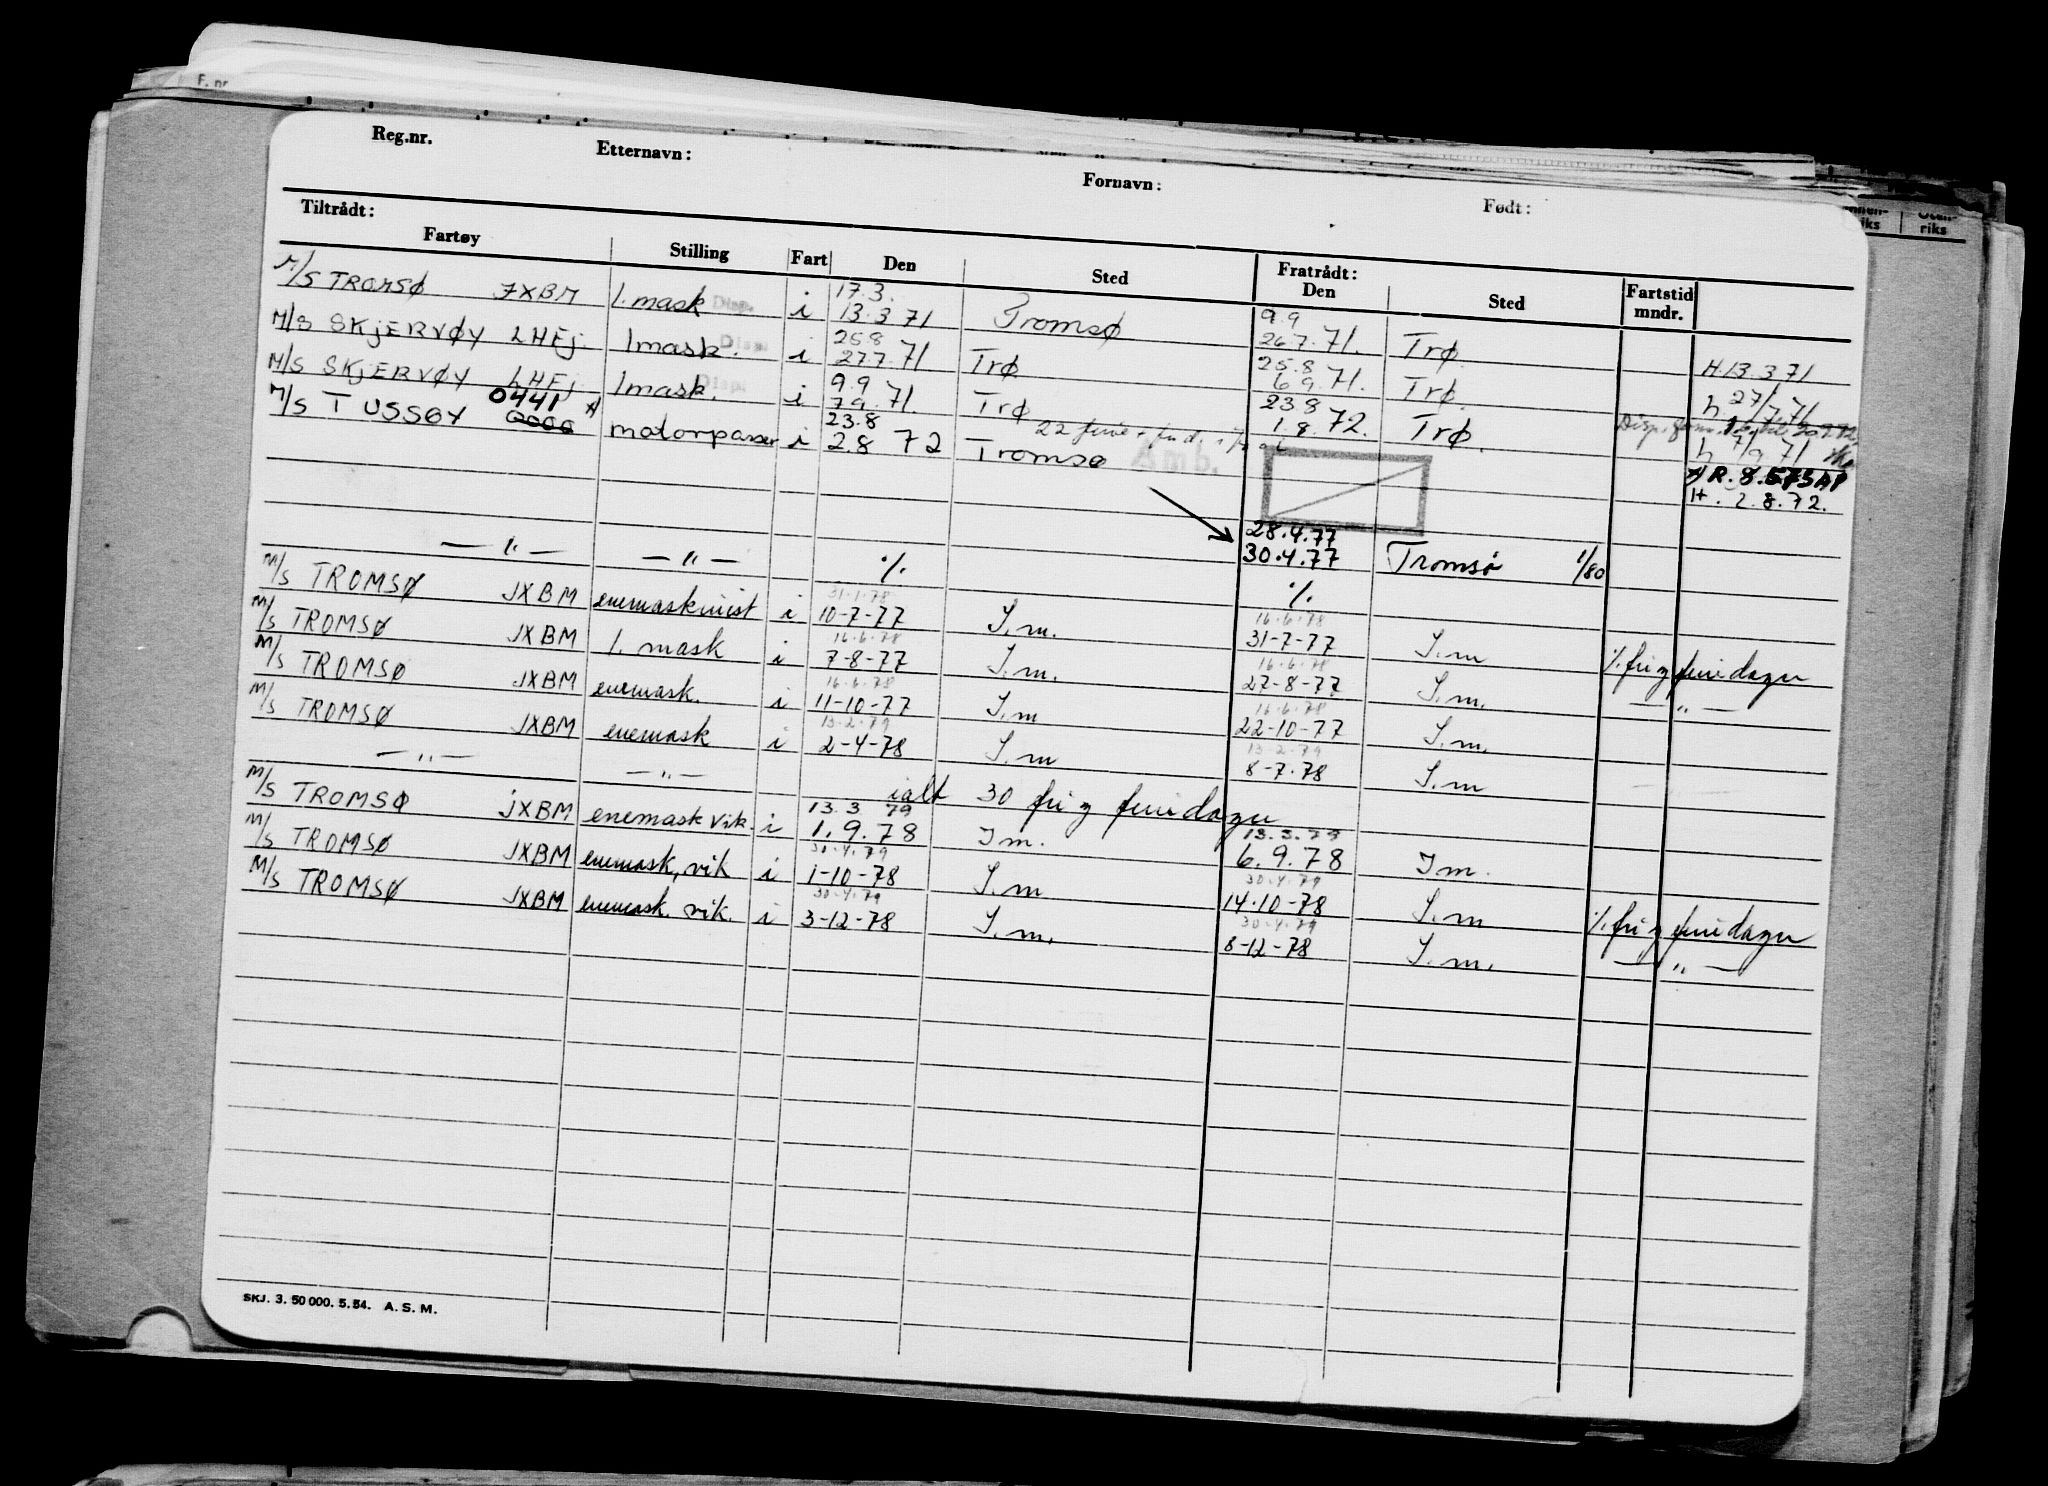 F. nr.
Reg.nr. Etternavn: Fornavn: Født:
Tiltrådt: Fratrådt:
Fartøy Stilling Fart Den Sted Den Sted Fartstid mndr.
riks riks
17.3. 9.9
M/S TROMSØ JXBM 1. mask Disp. i 13.3 71 Tromsø 26.7.71. Trø. H 13.3.71
25.8 25.8
M/S SKJERVØY LHEJ 1mask. Disp. i 27.7.71 Trø 6.9.71. Trø. h 27/7.71
9.9 23.8
M/S SKJERVØY LHEJ 1mask. Disp. i 7.9.71. Trø 1.8.72. Trø. h 7/9 71
0441 23.8
M/S TUSSØY motorpasser i 2.8 72 Tromsø Amb. H. 2.8.72.
28.4.77
—"— —"— ./. 30.4.77 Tromsø 1/80
31.1.78 ./.
M/S TROMSØ JXBM enemaskinist i 10-7-77 S.m.
16.6.78
31-7-77 S.m ./. fri g feriedager
16.6.78 16.6.78
M/S TROMSØ JXBM 1. mask i 7-8-77 S.m. 27-8-77 S.m. —"—
16.6.78 16.6.78
M/S TROMSØ JXBM enemask. i 11-10-77 S.m 22-10-77 S.m.
13.2.79 13.2.79
M/S TROMSØ JXBM enemask i 2-4-78 S.m 8-7-78 S.m
—"— —"— ialt 30 fri g feriedager
13.3 79 13.3.79
M/S TROMSØ JXBM enemask vik. i 1.9.78 Im. 6.9.78 Im.
30.4.79 30.4.79
M/S TROMSØ JXBM enemask, vik i 1-10-78 S.m 14-10-78 S.m ./. fri g feriedager
30.4.79 30.4.79
M/S TROMSØ JXBM enemask. vik. i 3-12-78 S.m. 8-12-78 S.m. —"—
SKJ. 3. 50 000. 5. 54. A. S. M.